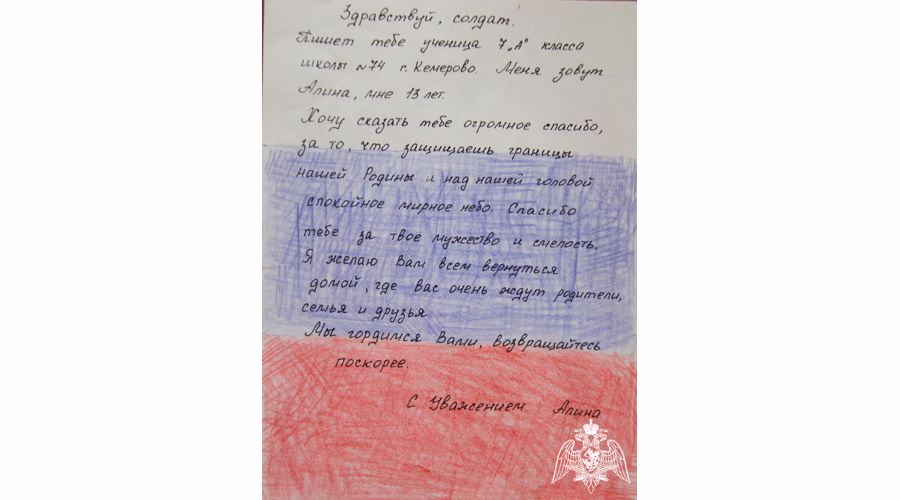 Здравствуй, солдат.
Пишет тебе ученица 7 „А" класса
школы №74 г. Кемерово. Меня зовут
Алина, мне 13 лет.
Хочу сказать тебе огромное спасибо,
за то, что защищаешь границы
нашей Родины и над нашей головой
спокойное мирное небо. Спасибо
тебе за твое мужество и смелость.
Я желаю Вам всем вернуться
домой, где вас очень ждут родители,
семья и друзья.
Мы гордимся Вами, возвращайтесь
поскорее.
С Уважением Алина